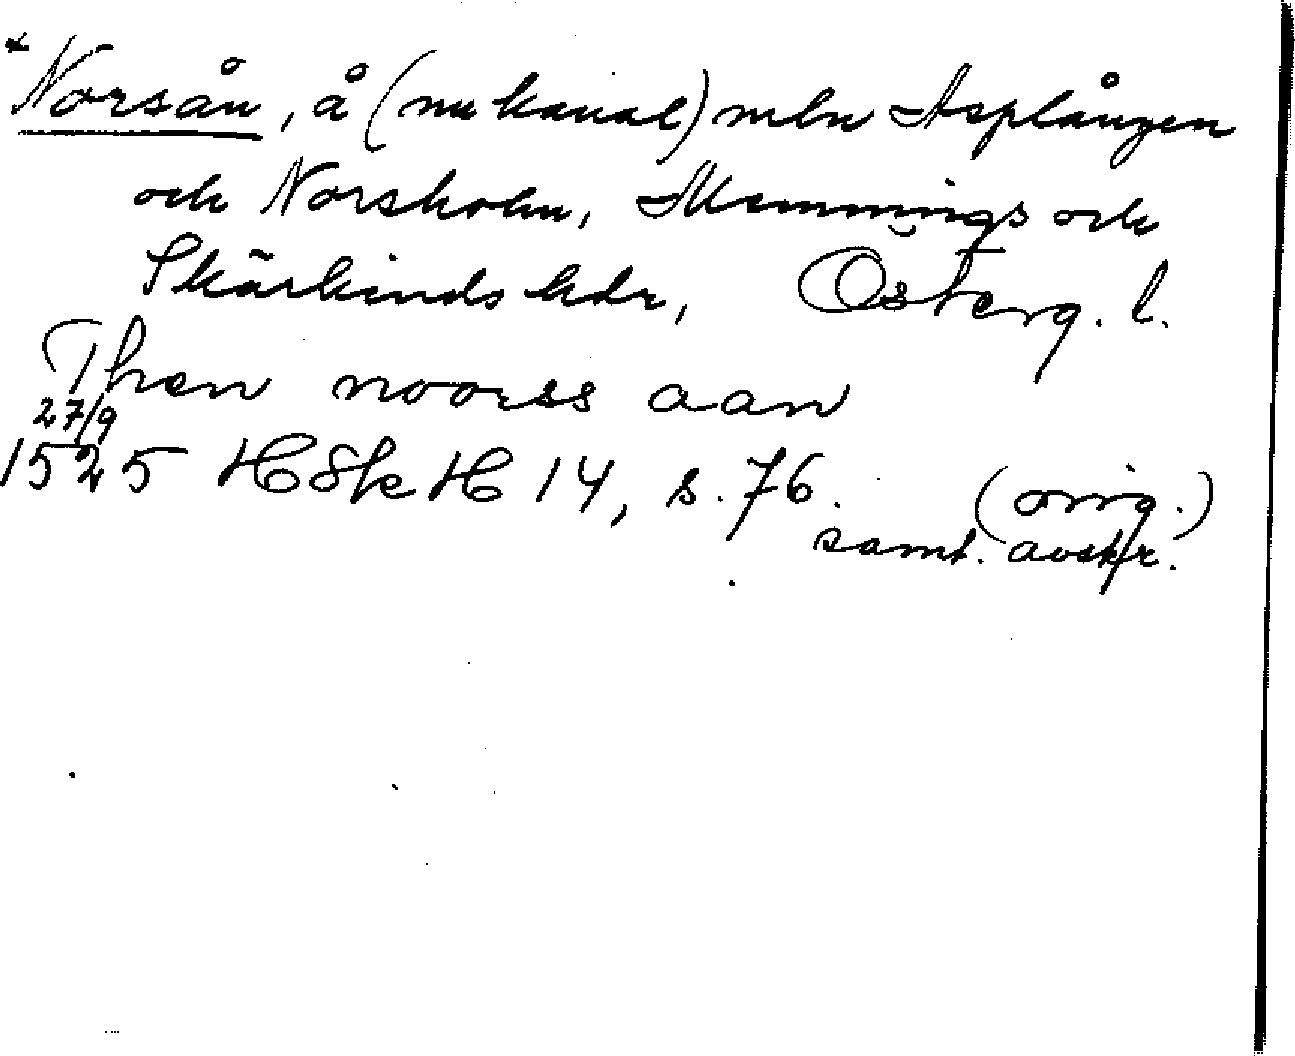 *Norsån, å (nu kanal) mln Asplången
och Norsholm, Memmings och
Skärkinds hdr, Österg. l.
Then noorss aan
27/9
1525 HSk H 14, s. 76. (orig.)
samt. avskr.